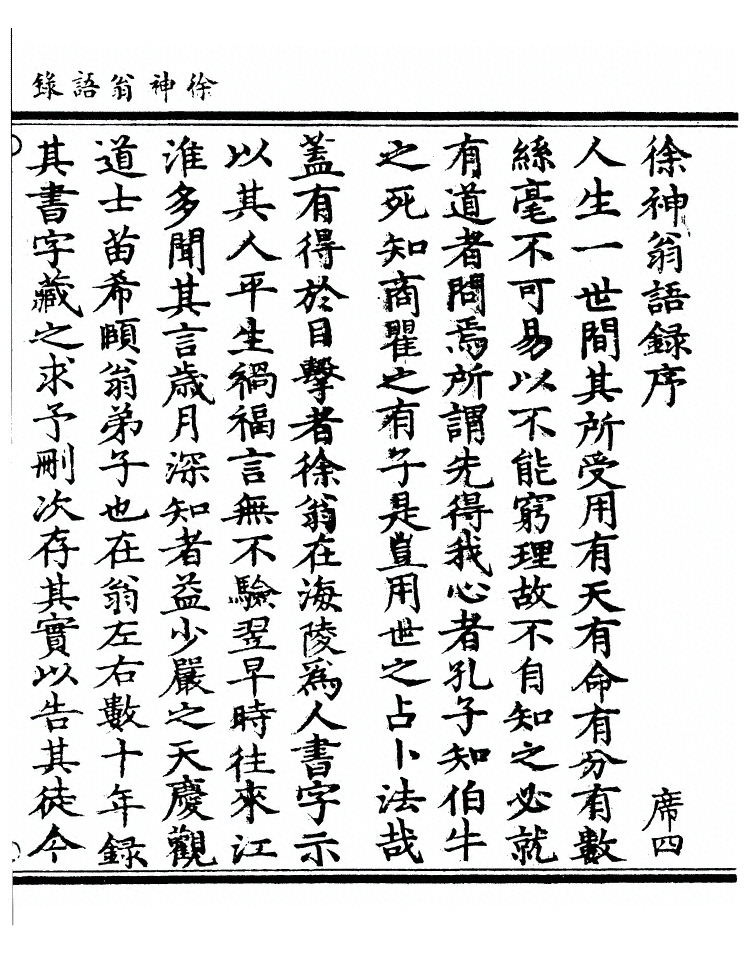 徐神翁語錄
徐神翁語録序
席四
人生一世間其所受用有天有命有分有數
絲毫不可易以不能窮理故不自知之必就
有道者問焉所謂先得我心者孔子知伯牛
之死知商瞿之有子是豈用世之占卜法哉
蓋有得於目擊者徐翁在海陵爲人書字示
以其人平生禍福言無不驗翌早時往來江
淮多聞其言歲月深知者益少嚴之天慶觀
道士苗希頤翁弟子也在翁左右數十年録
其書字藏之求予刪次存其實以告其徒今